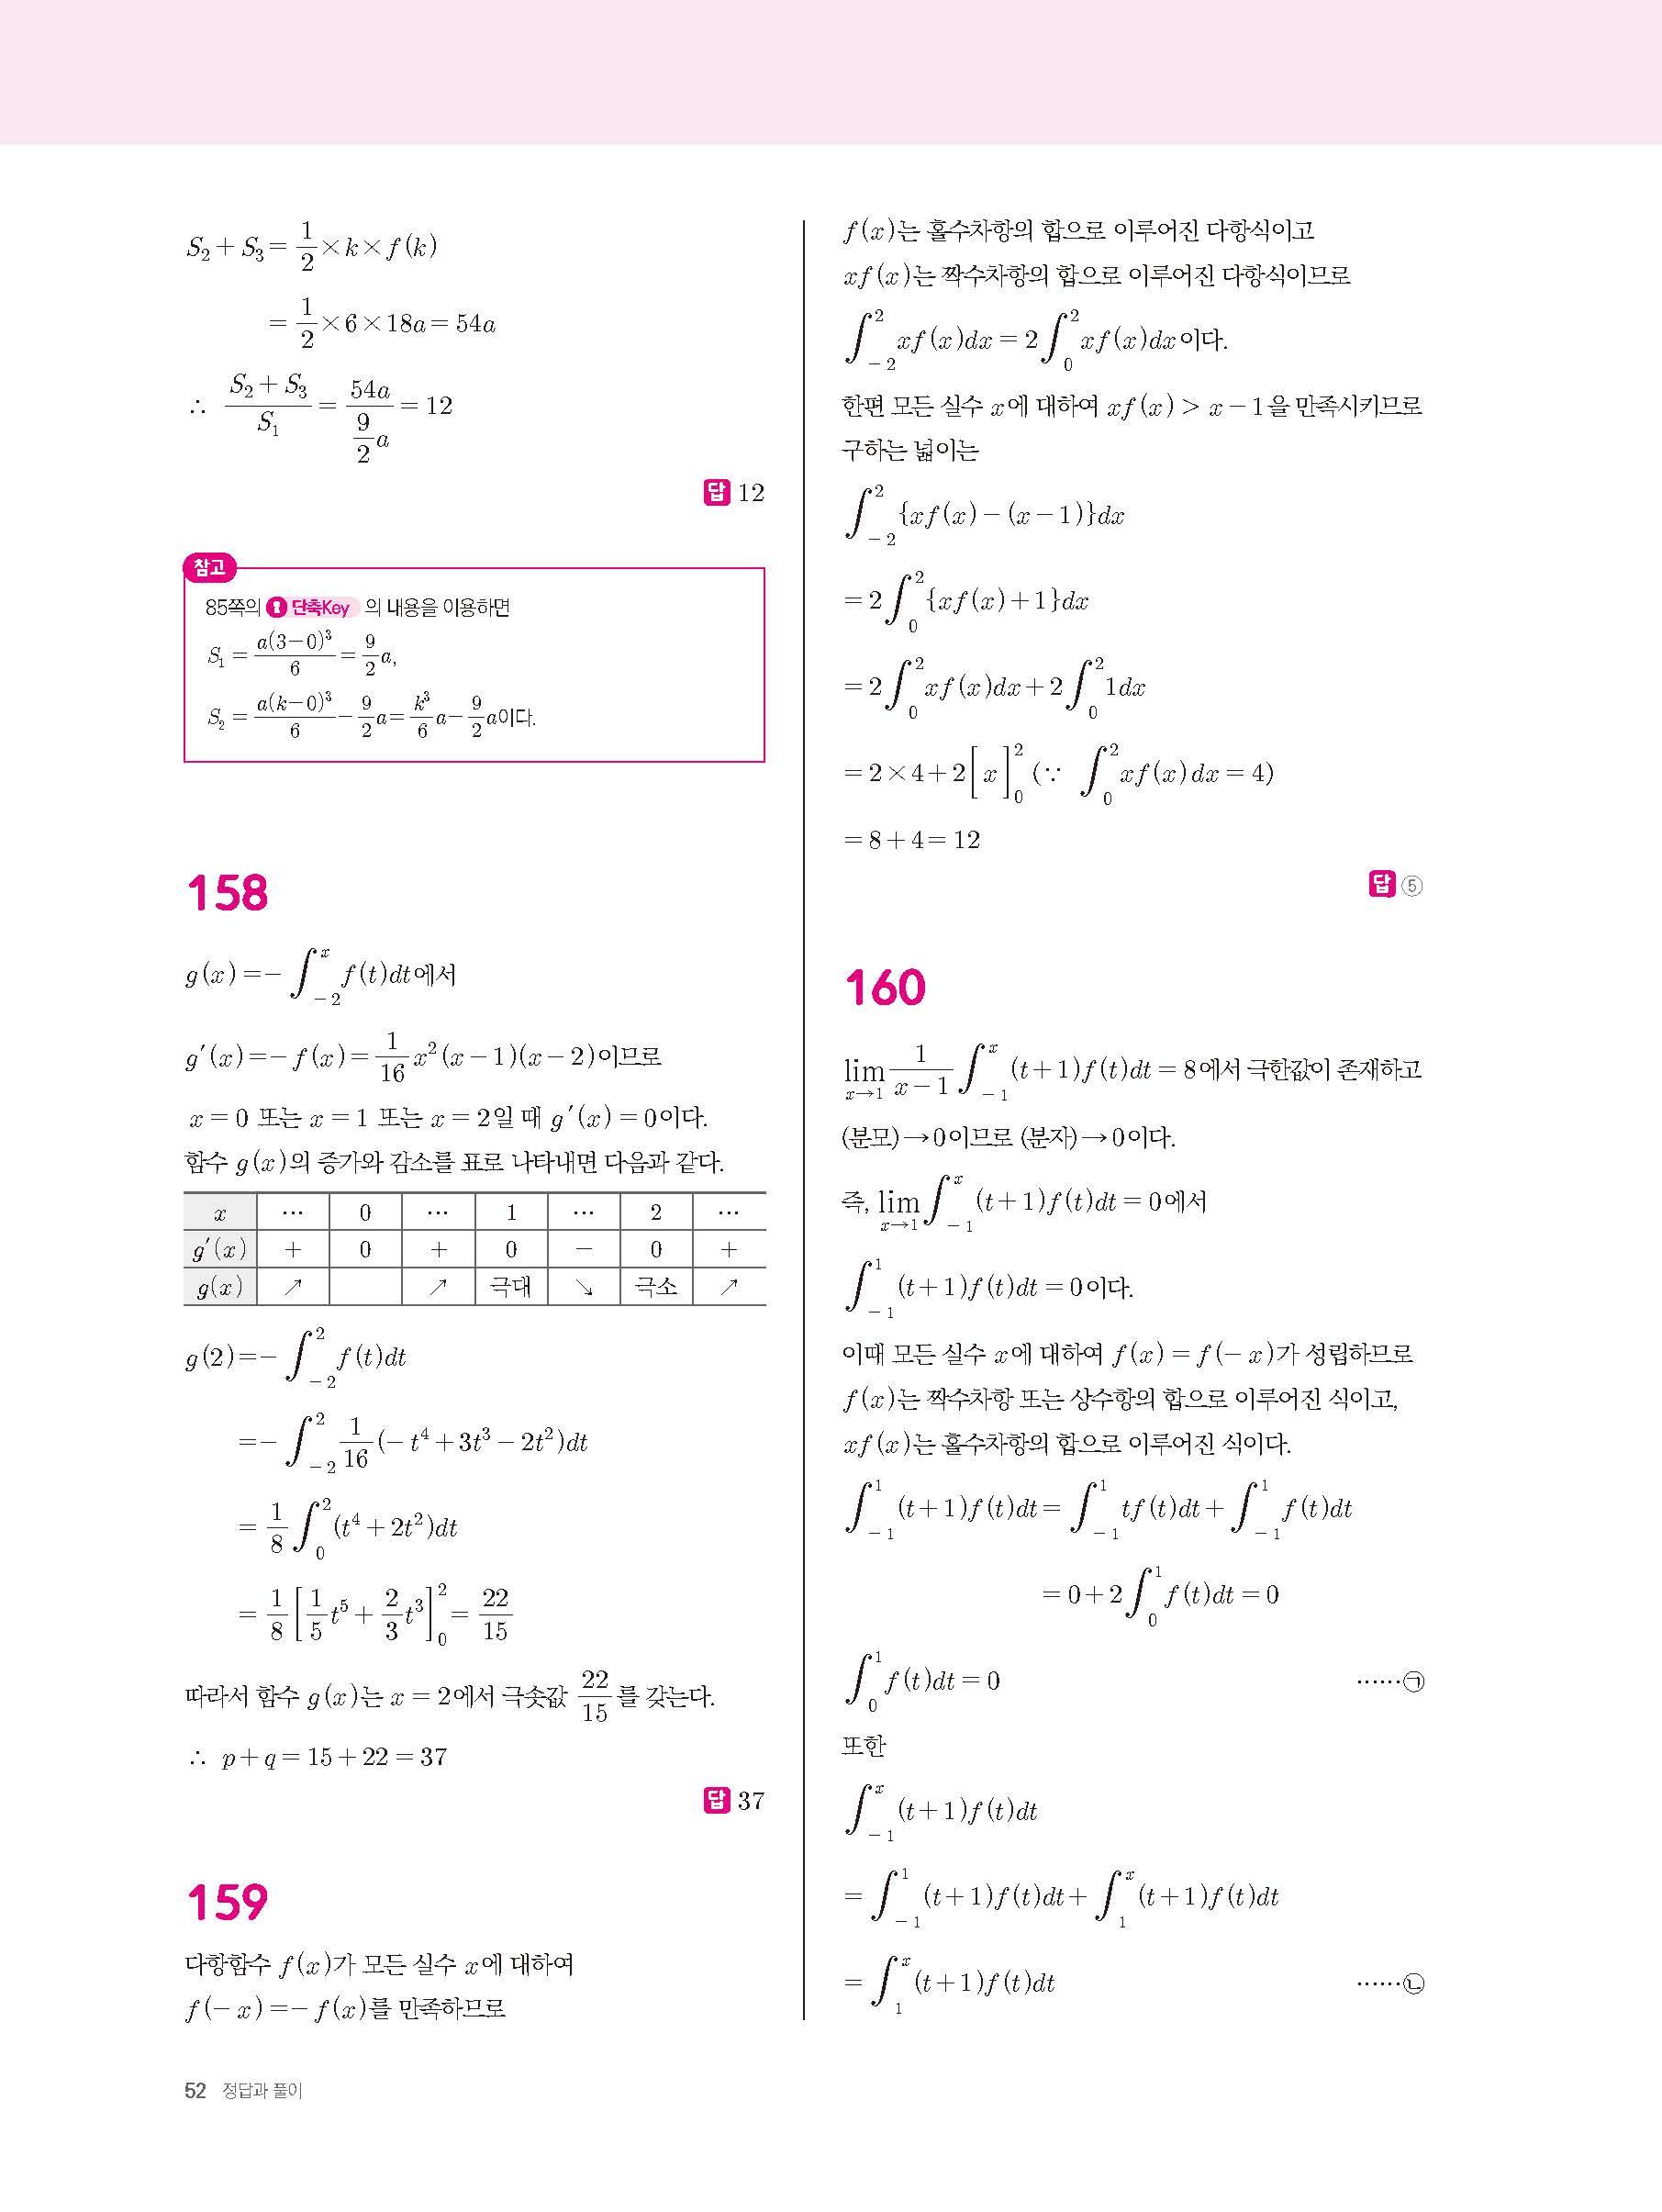 S₂+S₃=1/2×k×f(k)
=1/2×6×18a=54a
∴ (S₂+S₃)/S₁=54a/(9/2 a)=12
답 12
참고
85쪽의 단축Key 의 내용을 이용하면
S₁=a(3−0)³/6=9/2 a,
S₂=a(k−0)³/6−9/2 a=k³/6 a−9/2 a이다.
158
g(x)=−∫₋₂ˣ f(t)dt에서
g′(x)=−f(x)=1/16 x²(x−1)(x−2)이므로
x=0 또는 x=1 또는 x=2일 때 g′(x)=0이다.
함수 g(x)의 증가와 감소를 표로 나타내면 다음과 같다.
x ⋯ 0 ⋯ 1 ⋯ 2 ⋯
g′(x) + 0 + 0 − 0 +
g(x) ↗ ↗ 극대 ↘ 극소 ↗
g(2)=−∫₋₂² f(t)dt
=−∫₋₂² 1/16(−t⁴+3t³−2t²)dt
=1/8∫₀²(t⁴+2t²)dt
=1/8[1/5 t⁵+2/3 t³]₀²=22/15
따라서 함수 g(x)는 x=2에서 극솟값 22/15를 갖는다.
∴ p+q=15+22=37
답 37
159
다항함수 f(x)가 모든 실수 x에 대하여
f(−x)=−f(x)를 만족하므로
f(x)는 홀수차항의 합으로 이루어진 다항식이고
xf(x)는 짝수차항의 합으로 이루어진 다항식이므로
∫₋₂² xf(x)dx=2∫₀² xf(x)dx이다.
한편 모든 실수 x에 대하여 xf(x)>x−1을 만족시키므로
구하는 넓이는
∫₋₂² {xf(x)−(x−1)}dx
=2∫₀² {xf(x)+1}dx
=2∫₀² xf(x)dx+2∫₀² 1dx
=2×4+2[x]₀² (∵ ∫₀² xf(x)dx=4)
=8+4=12
답 ⑤
160
lim(x→1) 1/(x−1) ∫₋₁ˣ (t+1)f(t)dt=8에서 극한값이 존재하고
(분모)→0이므로 (분자)→0이다.
즉, lim(x→1) ∫₋₁ˣ (t+1)f(t)dt=0에서
∫₋₁¹ (t+1)f(t)dt=0이다.
이때 모든 실수 x에 대하여 f(x)=f(−x)가 성립하므로
f(x)는 짝수차항 또는 상수항의 합으로 이루어진 식이고,
xf(x)는 홀수차항의 합으로 이루어진 식이다.
∫₋₁¹ (t+1)f(t)dt=∫₋₁¹ tf(t)dt+∫₋₁¹ f(t)dt
=0+2∫₀¹ f(t)dt=0
∫₀¹ f(t)dt=0 ⋯⋯㉠
또한
∫₋₁ˣ (t+1)f(t)dt
=∫₋₁¹ (t+1)f(t)dt+∫₁ˣ (t+1)f(t)dt
=∫₁ˣ (t+1)f(t)dt ⋯⋯㉡
52 정답과 풀이